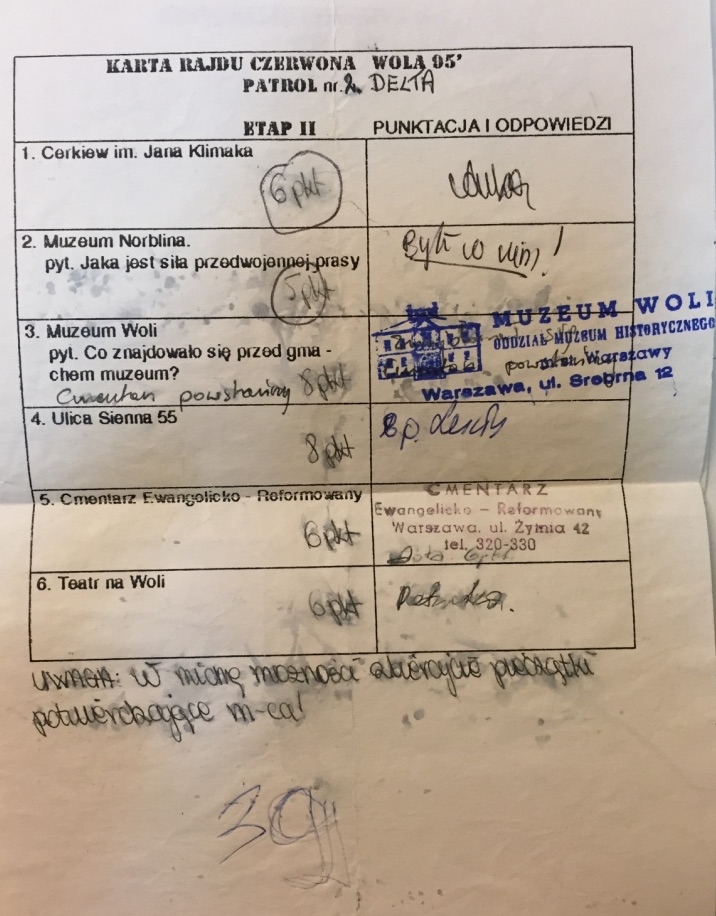 KARTA RAJDU CZERWONA WOLA 95'
PATROL nr. 2. DELTA
ETAP II PUNKTACJA I ODPOWIEDZI
1. Cerkiew im. Jana Klimaka
6 pkt
2. Muzeum Norblina.
pyt. Jaka jest siła przedwojennej prasy
5 pkt
Byli w nim!
3. Muzeum Woli
pyt. Co znajdowało się przed gma -
chem muzeum?
Cmentarz powstańczy 8 pkt
MUZEUM WOLI
ODDZIAŁ MUZEUM HISTORYCZNEGO
Warszawy
Warszawa, ul. Srebrna 12
4. Ulica Sienna 55
8 pkt
5. Cmentarz Ewangelicko - Reformowany
6 pkt
CMENTARZ
Ewangelicko – Reformowany
Warszawa, ul. Żytnia 42
tel. 320-330
6 pkt
6. Teatr na Woli
6 pkt
UWAGA: W miarę możności zbierajcie pieczątki
potwierdzające m-ca!
39